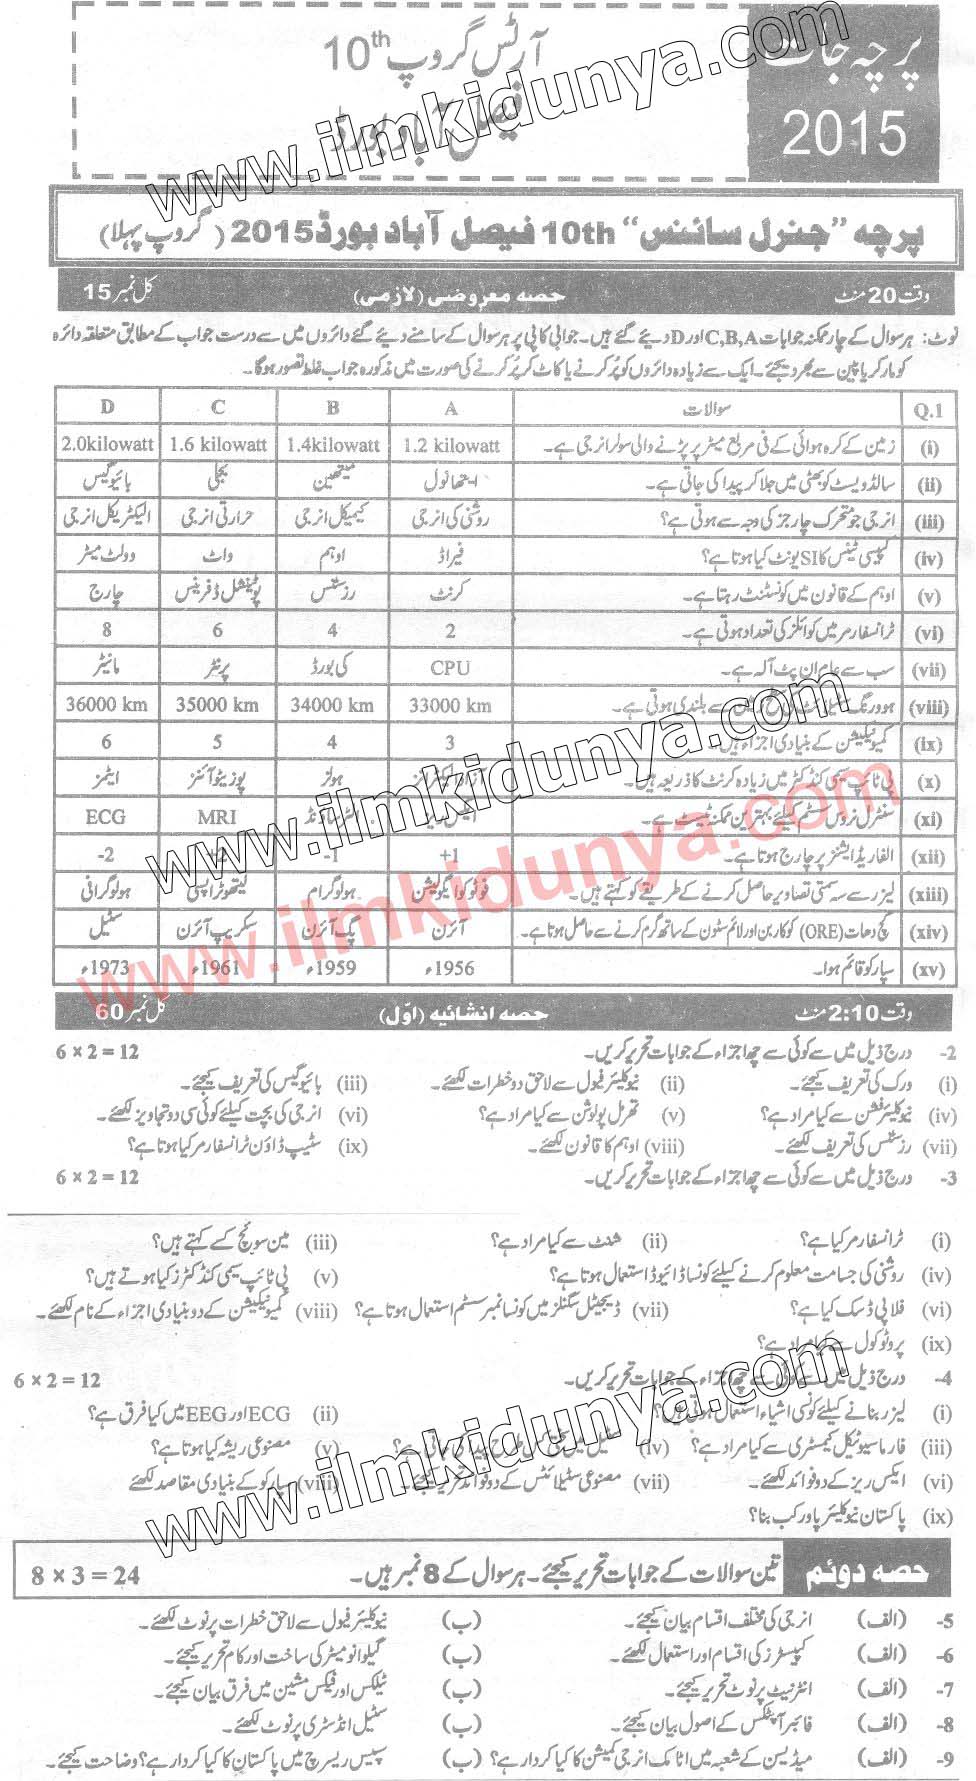 پرچہ جات
2015
آرٹس گروپ 10th
فیصل آباد بورڈ
www.ilmkidunya.com
پرچہ ”جنرل سائنس“ 10th فیصل آباد بورڈ 2015 (گروپ پہلا)
وقت 20 منٹ حصہ معروضی (لازمی) کل نمبر 15
نوٹ: ہر سوال کے چار ممکنہ جوابات C,B,A اور D دیئے گئے ہیں۔ جوابی کاپی پر ہر سوال کے سامنے دیئے گئے دائروں میں سے درست جواب کے مطابق متعلقہ دائرہ
کو مارکر یا پین سے بھر دیجئے۔ ایک سے زیادہ دائروں کو پُر کرنے یا کاٹ کر پُر کرنے کی صورت میں مذکورہ جواب غلط تصور ہوگا۔
Q.1 سوالات A B C D
(i) زمین کے کرہ ہوائی کے فی مربع میٹر پر پڑنے والی سولر انرجی ہے۔ 1.2 kilowatt 1.4kilowatt 1.6 kilowatt 2.0kilowatt
(ii) سالڈ ویسٹ کو بھٹی میں جلا کر پیدا کی جاتی ہے۔ ایتھانول میتھین بجلی بائیو گیس
(iii) انرجی جو متحرک چارجز کی وجہ سے ہوتی ہے؟ روشنی کی انرجی کیمیکل انرجی حرارتی انرجی الیکٹریکل انرجی
(iv) کپیسی ٹینس کا SI یونٹ کیا ہوتا ہے؟ فیراڈ اوہم واٹ وولٹ میٹر
(v) اوہم کے قانون میں کونسٹنٹ رہتا ہے۔ کرنٹ رزسٹنس پوٹینشل ڈفرینس چارج
(vi) ٹرانسفارمر میں کوائلز کی تعداد ہوتی ہے۔ 2 4 6 8
(vii) سب سے عام ان پٹ آلہ ہے۔ CPU کی بورڈ پرنٹر مانیٹر
(viii) ہوورنگ سیٹلائٹ کی سطح زمین سے بلندی ہوتی ہے۔ 33000 km 34000 km 35000 km 36000 km
(ix) کمیونیکیشن کے بنیادی اجزاء ہیں۔ 3 4 5 6
(x) پی ٹائپ سیمی کنڈکٹر میں زیادہ کرنٹ کا ذریعہ ہیں۔ آزاد الیکٹرانز ہولز پوزیٹو آئنز ایٹمز
(xi) سنٹرل نروس سسٹم کیلئے بہترین ممکنہ ٹیسٹ ہے۔ ایکس ریز الٹراساؤنڈ MRI ECG
(xii) الفا ریڈایشنز پر چارج ہوتا ہے۔ +1 -1 +2 -2
(xiii) لیزر سے سہ سمتی تصاویر حاصل کرنے کے طریقے کو کہتے ہیں۔ فوٹو کوایگولیشن ہولوگرام لیتھوٹراپسی ہولوگرافی
(xiv) کچ دھات (ORE) کو کاربن اور لائم سٹون کے ساتھ گرم کرنے سے حاصل ہوتا ہے۔ آئرن پگ آئرن سکریپ آئرن سٹیل
(xv) سپارکو قائم ہوا۔ 1956ء 1959ء 1961ء 1973ء
www.ilmkidunya.com
www.ilmkidunya.com
وقت 2:10 منٹ حصہ انشائیہ (اوّل) کل نمبر 60
2- درج ذیل میں سے کوئی سے چھ اجزاء کے جوابات تحریر کریں۔ 6 × 2 = 12
(i) ورک کی تعریف کیجئے۔ (ii) نیوکلیئر فیول سے لاحق دو خطرات لکھئے۔ (iii) بائیو گیس کی تعریف کیجئے۔
(iv) نیوکلیئر فشن سے کیا مراد ہے؟ (v) تھرمل پولوشن سے کیا مراد ہے؟ (vi) انرجی کی بچت کیلئے کوئی سی دو تجاویز لکھئے۔
(vii) رزسٹنس کی تعریف لکھئے۔ (viii) اوہم کا قانون لکھئے۔ (ix) سٹیپ ڈاؤن ٹرانسفارمر کیا ہوتا ہے؟
3- درج ذیل میں سے کوئی سے چھ اجزاء کے جوابات تحریر کریں۔ 6 × 2 = 12
(i) ٹرانسفارمر کیا ہے؟ (ii) شنٹ سے کیا مراد ہے؟ (iii) مین سوئچ کسے کہتے ہیں؟
(iv) روشنی کی جسامت معلوم کرنے کیلئے کونسا ڈائیوڈ استعمال ہوتا ہے؟ (v) پی ٹائپ سیمی کنڈکٹرز کیا ہوتے ہیں؟
(vi) فلاپی ڈسک کیا ہے؟ (vii) ڈیجیٹل سگنلز میں کونسا نمبر سسٹم استعمال ہوتا ہے؟ (viii) کمیونیکیشن کے دو بنیادی اجزاء کے نام لکھئے۔
(ix) پروٹوکول سے کیا مراد ہے؟
4- درج ذیل میں سے کوئی سے چھ اجزاء کے جوابات تحریر کریں۔ 6 × 2 = 12
(i) لیزر بنانے کیلئے کونسی اشیاء استعمال ہوتی ہیں؟ (ii) ECG اور EEG میں کیا فرق ہے؟
(iii) فارماسیوٹیکل کیمسٹری سے کیا مراد ہے؟ (iv) سٹیل میں سختی کس طرح پیدا کی جاتی ہے؟ (v) مصنوعی ریشہ کیا ہوتا ہے؟
(vi) ایکس ریز کے دو فوائد لکھئے۔ (vii) مصنوعی سٹیلائٹس کے دو فوائد تحریر کیجئے۔ (viii) سپارکو کے بنیادی مقاصد لکھئے
(ix) پاکستان نیوکلیئر پاور کب بنا؟
www.ilmkidunya.com
حصہ دوئم تین سوالات کے جوابات تحریر کیجئے۔ ہر سوال کے 8 نمبر ہیں۔ 8 × 3 = 24
5- (الف) انرجی کی مختلف اقسام بیان کیجئے۔ (ب) نیوکلیئر فیول سے لاحق خطرات پر نوٹ لکھئے۔
6- (الف) کپیسٹرز کی اقسام اور استعمال لکھئے۔ (ب) گیلوانومیٹر کی ساخت اور کام تحریر کیجئے۔
7- (الف) انٹرنیٹ پر نوٹ تحریر کیجئے۔ (ب) ٹیلکس اور فیکس مشین میں فرق بیان کیجئے۔
8- (الف) فائبر آپٹکس کے اصول بیان کیجئے۔ (ب) سٹیل انڈسٹری پر نوٹ لکھئے۔
9- (الف) میڈیسن کے شعبہ میں اٹامک انرجی کمیشن کا کیا کردار ہے؟ (ب) سپیس ریسرچ میں پاکستان کا کیا کردار ہے؟ وضاحت کیجئے۔